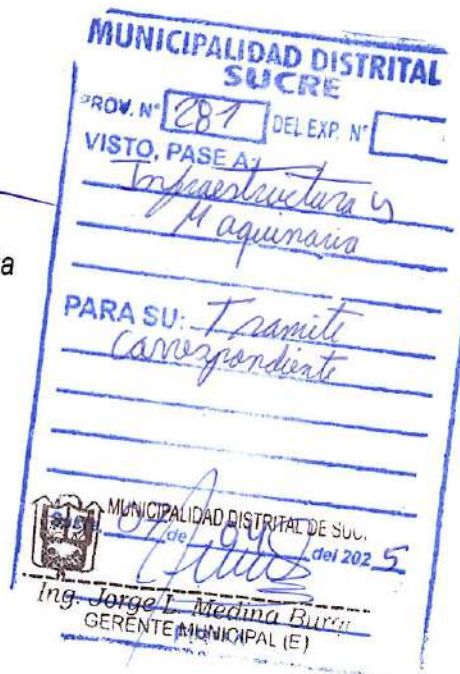 MUNICIPALIDAD DISTRITAL
SUCRE
PROV. N° 281 DEL EXP. N°
VISTO, PASE A:
Infraestructura y
Maquinaria
a
PARA SU: Tramite
Correspondiente
MUNICIPALIDAD DISTRITAL DE SUC.
de del 2025
Ing. Jorge L. Medina
GERENTE MUNICIPAL (E)